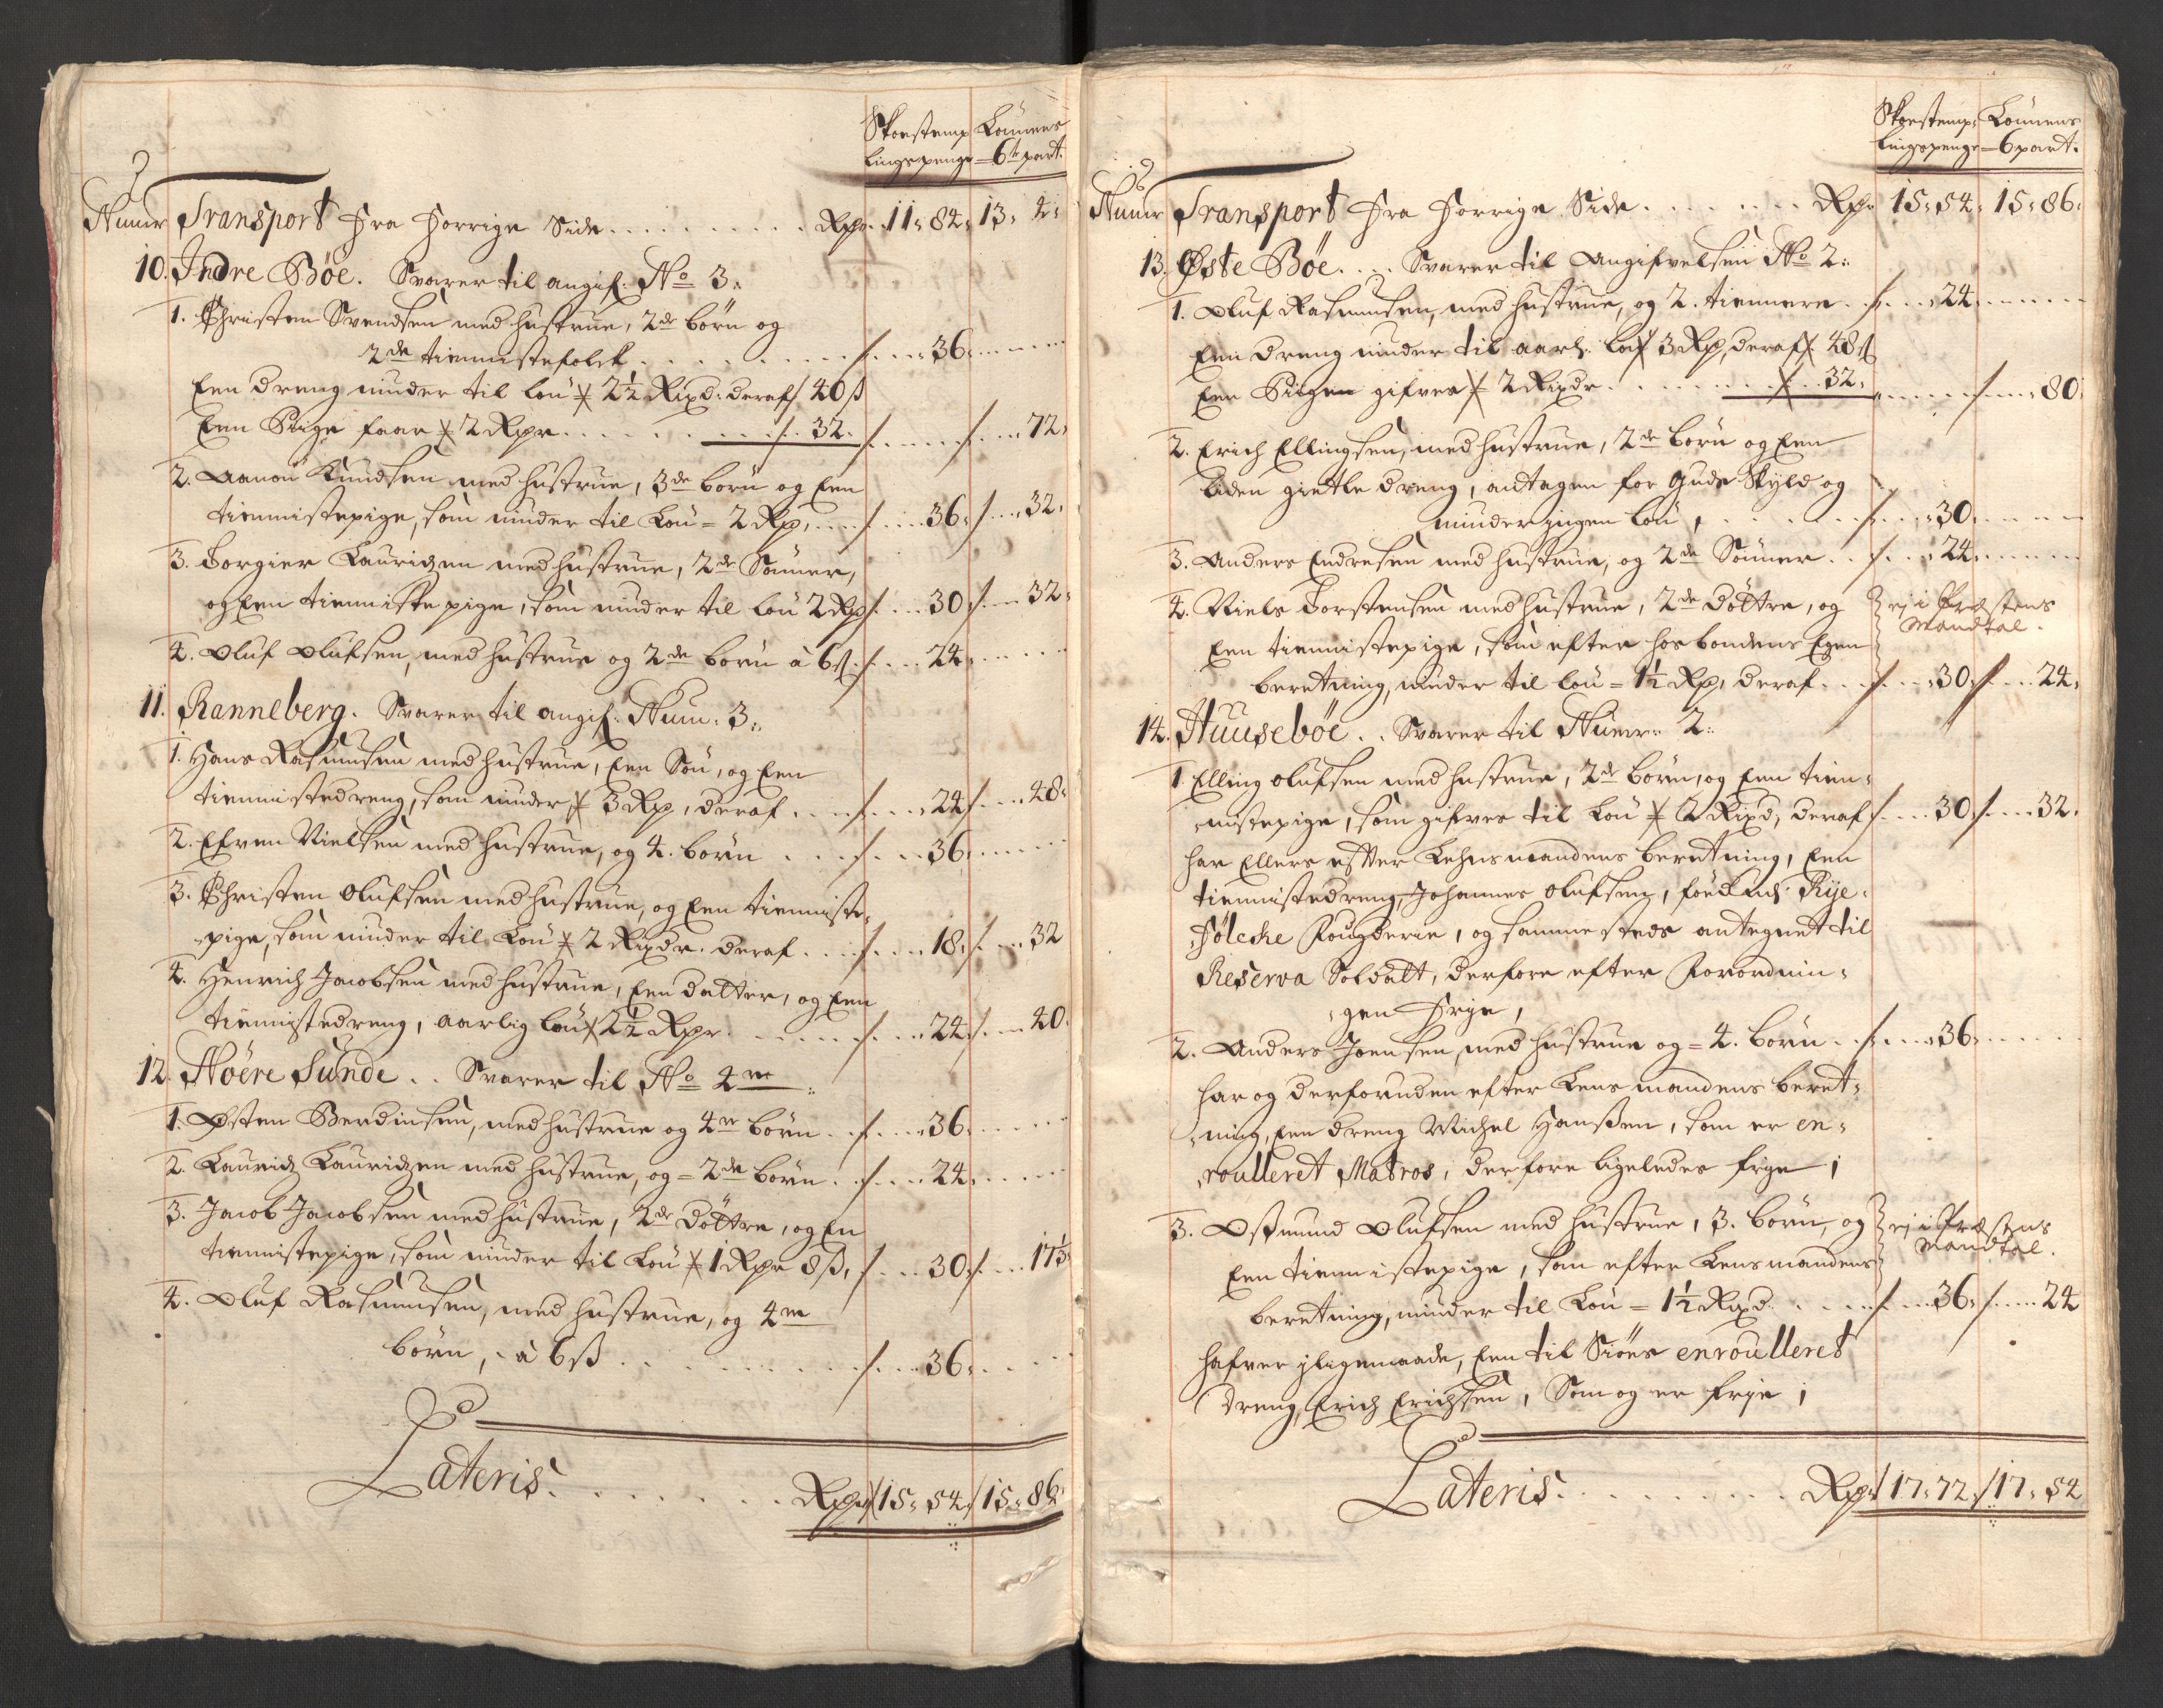 Skorstemp Lönnens
lingspenge 6te part.
Numr Transport fra Forrige Side . . . Rdr. 11: 84: 13: 4:
10. Indre Böe. Svarer til angif. No 3:
1. Christen Svendsen med hustrue, 2de börn og
2de tiennistefolck . . . 36:
Een dreng niuder til lön 2½ Rixd. deraf 40 ß
Een Pige faar 2 Rdr. . . . 32. . . . 72:
2. Aanon Knudsen med hustrue, 3de börn og Een
tiennistepige, som niuder til Lön = 2 Rdr, . . . 36: . . . 32:
3. Torgier Lauridzen med hustrue, 2de Sönner,
og Een tienniste pige, som niuder til lön 2 Rdr . . . 30 . . . 32:
4. Oluf Olufsen, med hustrue og 2de börn à 6 ß . . . 24:
11. Ranneberg. Svarer til angif. Num. 3:
1. Hans Rasmusen med hustrue, Een Sön, og Een
tiennistedreng, som niuder 3 Rdr, deraf . . . 24 . . . 48:
2. Efven Nielsen med hustrue, og 4. börn . . . 36:
3. Christen Olufsen med hustrue, og Een tienniste-
pige, som niuder til Lön 2 Rixdr. deraf . . . 18: . . . 32
4. Henrich Jacobsen med hustrue, Een datter, og Een
tiennistedreng, aarlig lön 2½ Rdr. . . . 24: . . . 40.
12. Nöere Sunde . . Svarer til No 4re
1. Østen Berdinsen, med hustrue og 4re börn . . . 36:
2. Lauridz Lauridzen med hustrue, og = 2de börn . . . 24:
3. Jacob Jacobsen med hustrue, 2de Döttre, og En
tiennistepige, som niuder til Lön 1 Rdr 8 ß, . . . 30: . . . 17⅓
4. Oluf Rasmusen, med hustrue, og 4re
börn, à 6 ß . . . 36:
Lateris. . . . Rdr 15: 54: 15: 86:
Skorstemp: Lönnens
lingspenge 6 part.
Numr Transport fra Forrige Side . . . Rdr 15: 54: 15: 86:
13. Øste Böe. . . . Svarer til Angifvelsen No 2:
1. Oluf Rasmusen, med hustrue, og 2. tiennere . . . 24:
Een dreng niuder til aarl. lön 3 Rdr, deraf 48 ß
Een Pige gifves 2 Rixdr . . . 32: . . . 80:
2. Erich Ellingsen, med hustrue, 2de börn og Een
liden gietle dreng, antagen for Guds Skyld og
niuder ingen lön, . . . 30:
3. Anders Endresen med hustrue, og 2de Sönner . . . 24:
4. Niels Torstensen med hustrue, 2de Döttre, og ej i Præstens
Mandtal.
Een tiennistepige, som efter hosbondens Egen
beretning, niuder til lön = 1½ Rdr, deraf . . . 30: . . . 24:
14. Huuseböe. . Svarer til Numr: 2:
1. Elling Olufsen med hustrue, 2de börn, og Een tien-
nistepige, som gifves til Lön 2 Rixd, deraf . . . 30 . . . 32:
har Ellers efter Lehnsmandens beretning, Een
tiennistedreng, Johannes Olufsen, föed udi Rye-
Fölcke Fougderie, og sammesteds antegnet til
Reserva Soldatt, derfore efter Forordnin-
gen Frye,
2. Anders Joensen, med hustrue og = 4. börn . . . 36:
har og derforuden efter Lens mandens beret-
ning, Een dreng Michel Hanßen, som er en-
roulleret Matros, derfore ligeledes frye,
3. Oßmund Olufsen med hustrue, 3. börn, og ej i Præstens
Mandtal.
Een tiennistepige, som efter Lensmandens
beretning, niuder til Lön = 1½ Rixd. . . . 36: . . . 24
hafver iligemaade, Een til Siöes enroulleret
dreng, Erich Erichsen, Som og er frye,
Lateris. . . . Rdr 17: 72: 17: 54